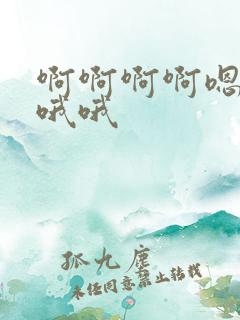 啊啊啊啊嗯
哦哦
孤九鏖
未经同意禁止转载